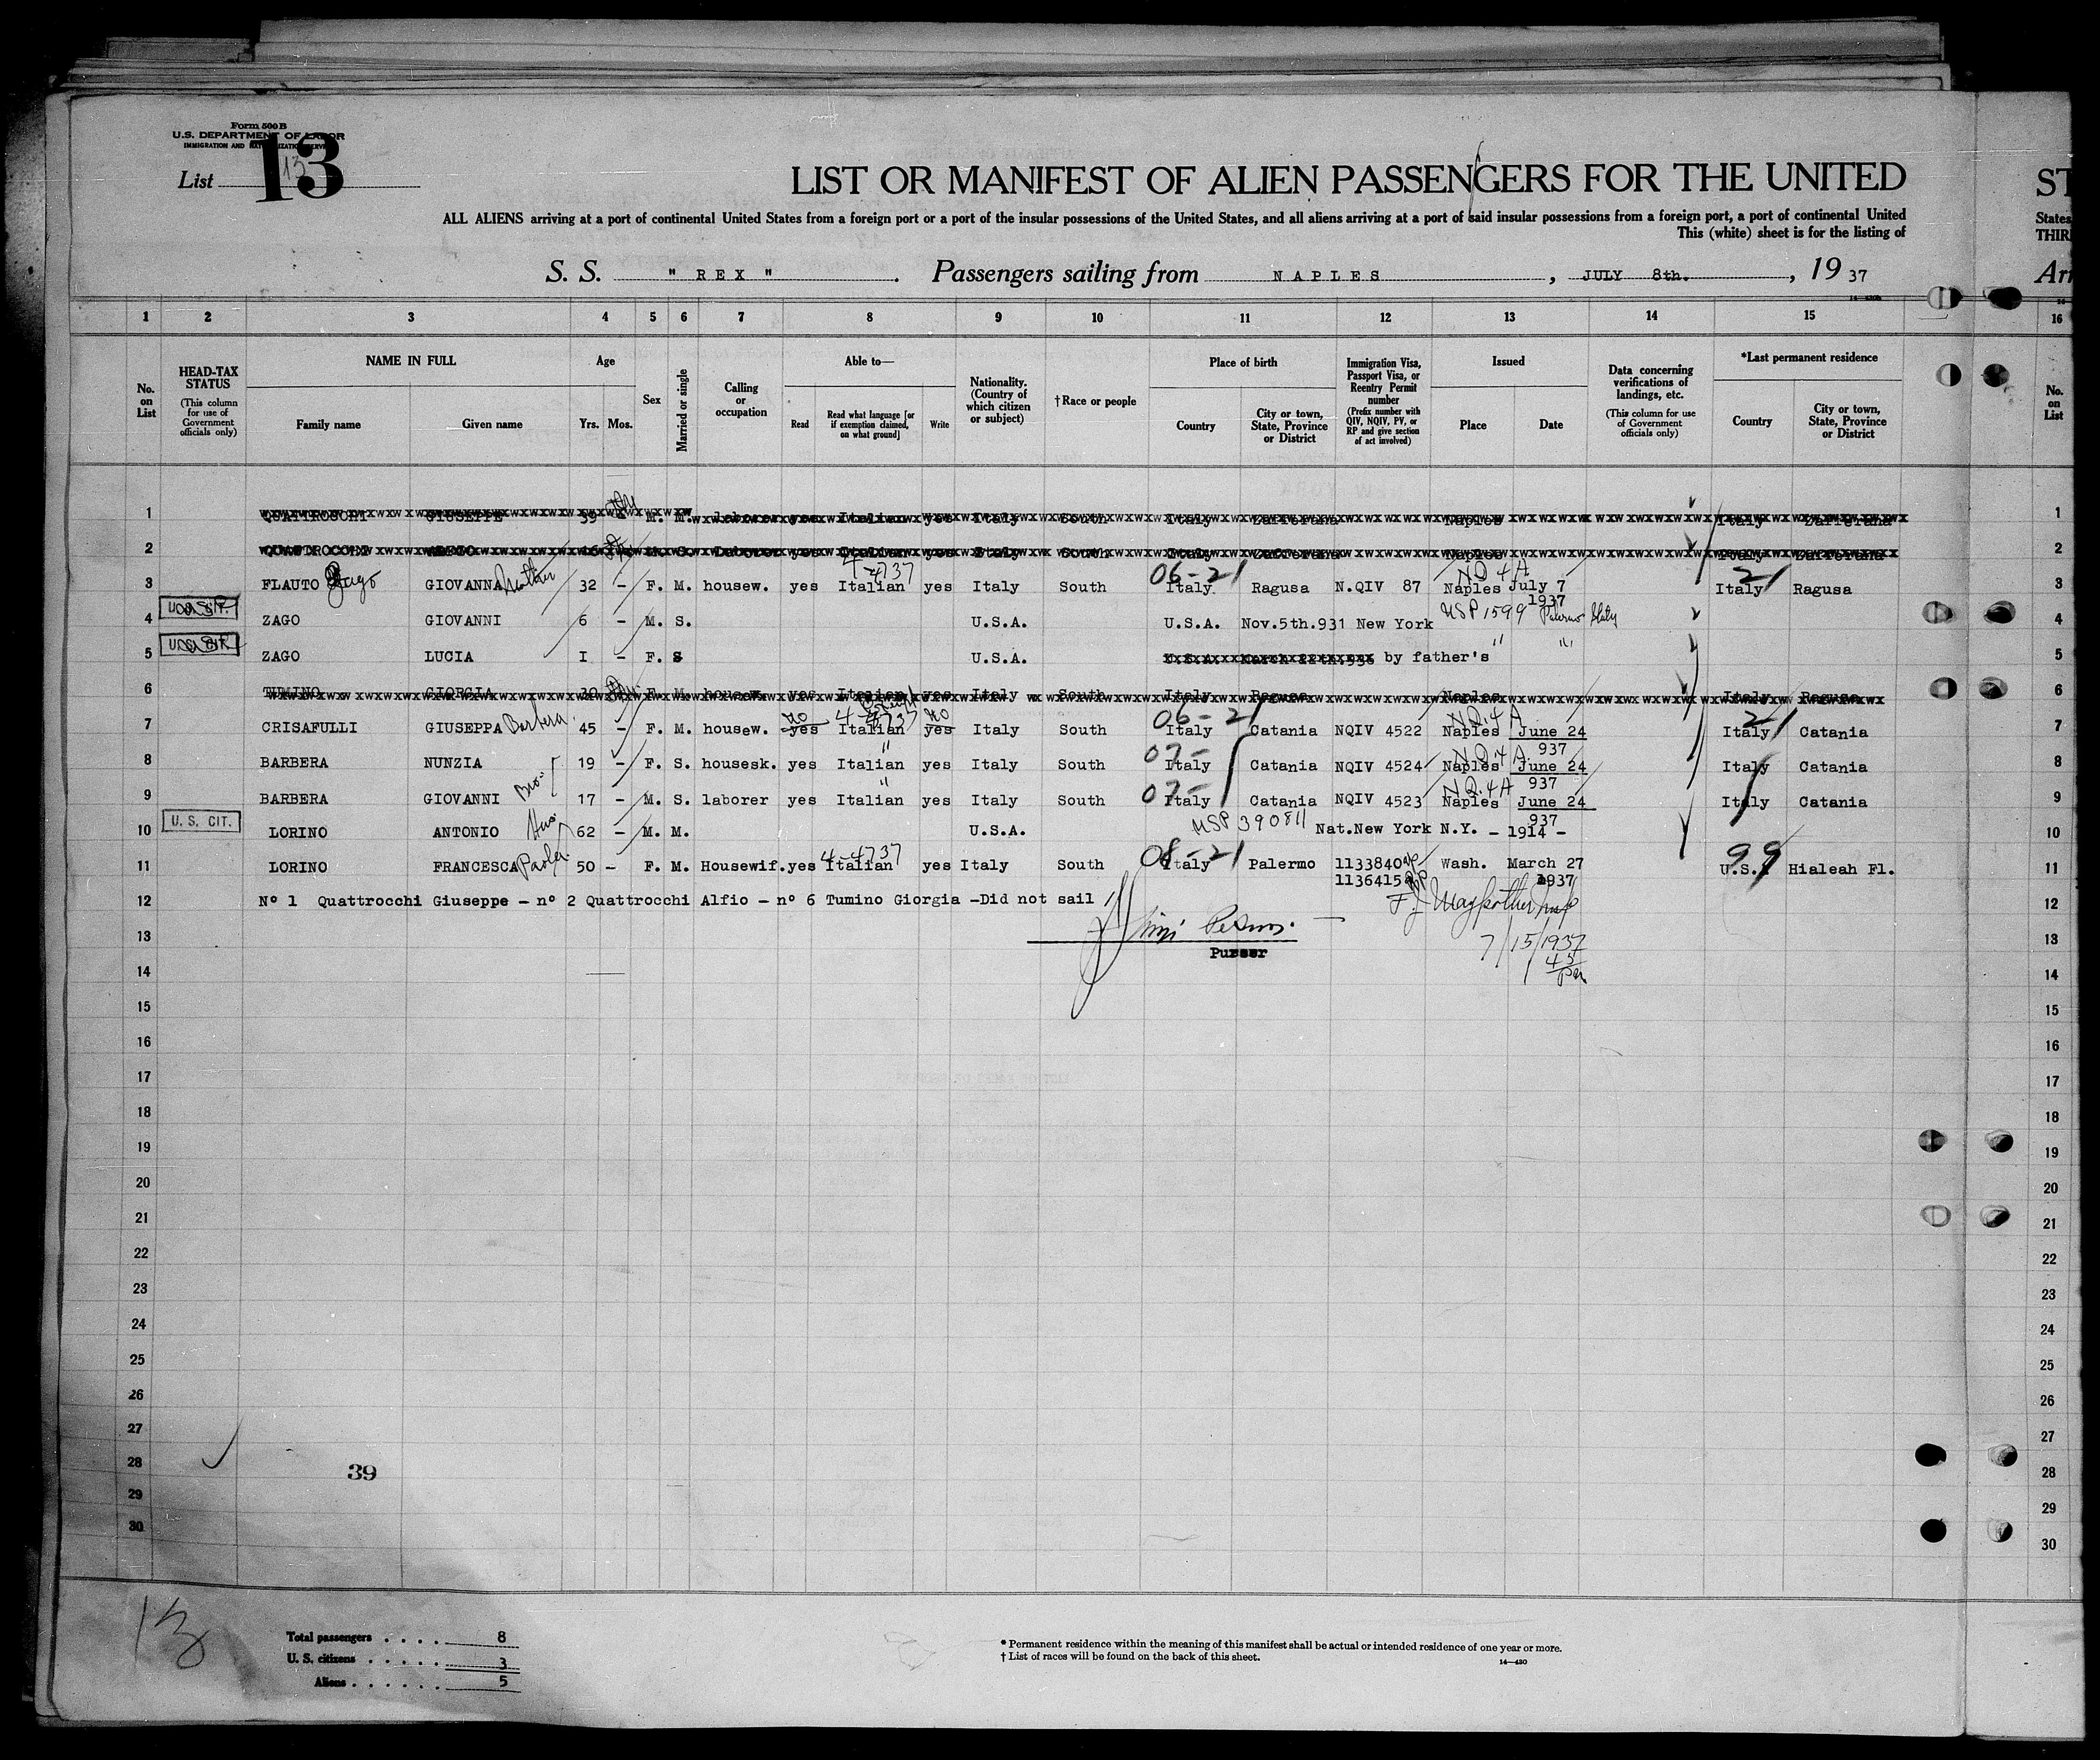 Form 500B
U.S. DEPARTMENT OF LABOR
IMMIGRATION AND NATURALIZATION SERVICE
List 13
13
LIST OR MANIFEST OF ALIEN PASSENGERS FOR THE UNITED
ST
ALL ALIENS arriving at a port of continental United States from a foreign port or a port of the insular possessions of the United States, and all aliens arriving at a port of said insular possessions from a foreign port, a port of continental United
States
This (white) sheet is for the listing of
THIR
S. S. " REX " . Passengers sailing from NAPLES , JULY 8th. , 19 37
Arr
1 2 3 4 5 6 7 8 9 10 11 12 13 14 15 16
No. on List
HEAD-TAX STATUS (This column for use of Government officials only)
NAME IN FULL
Family name Given name
Age
Yrs. Mos.
Sex
Married or single
Calling or occupation
Able to—
Read Read what language [or if exemption claimed, on what ground] Write
Nationality. (Country of which citizen or subject)
†Race or people
Place of birth
Country City or town, State, Province or District
Immigration Visa, Passport Visa, or Reentry Permit number (Prefix number with QIV, NQIV, PV, or RP and give section of act involved)
Issued
Place Date
Data concerning verifications of landings, etc. (This column for use of Government officials only)
*Last permanent residence
Country City or town, State, Province or District
No. on List
1 QUATTROCCHI GIUSEPPE 39 M. M. laborer yes Italian yes Italy South Italy Zafferana Naples Italy Zafferana 1
2 QUATTROCCHI ALFIO S. laborer yes Italian yes Italy South Italy Zafferana Naples Italy Zafferana 2
4-4737 06-21 NQ 4A 21
3 FLAUTO Zago GIOVANNA Mother 32 - F. M. housew. yes Italian yes Italy South Italy Ragusa N.QIV 87 Naples July 7 1937 Italy Ragusa 3
U.S. CIT.
4 ZAGO GIOVANNI 6 - M. S. U.S.A. U.S.A. Nov.5th.931 New York USP 1599 Palermo Italy 4
U.S. CIT.
5 ZAGO LUCIA I - F. S U.S.A. U.S.A. March by father's " " 5
6 TUMINO GIORGIA 30 F. M. housew. yes Italian yes Italy South Italy Ragusa Naples Italy Ragusa 6
no 4-4737 no 06-21 NQ.4A 21
7 CRISAFULLI GIUSEPPA Barbera 45 - F. M. housew. yes Italian yes Italy South Italy Catania NQIV 4522 Naples June 24 937 Italy Catania 7
" 07- NQ.4A
8 BARBERA NUNZIA 19 - F. S. housesk. yes Italian yes Italy South Italy Catania NQIV 4524 Naples June 24 937 Italy Catania 8
" 07- NQ.4A
9 BARBERA GIOVANNI Bro. 17 - M. S. laborer yes Italian yes Italy South Italy Catania NQIV 4523 Naples June 24 937 Italy Catania 9
U. S. CIT.
10 LORINO ANTONIO Hus. 62 - M. M. U.S.A. USP 390811 Nat.New York N.Y. - 1914 - 10
4-4737 08-21 99
11 LORINO FRANCESCA Paola 50 - F. M. Housewif. yes Italian yes Italy South Italy Palermo 1133840 RP Wash. March 27 U.S. Hialeah Fl. 11
1136415 RP 1937
12 Nº 1 Quattrocchi Giuseppe - nº 2 Quattrocchi Alfio - nº 6 Tumino Giorgia -Did not sail 12
13 Purser 7/15/1937 13
14 14
15 15
16 16
17 17
18 18
19 19
20 20
21 21
22 22
23 23
24 24
25 25
26 26
27 27
28 39 28
29 29
30 30
13
Total passengers . . . . 8
U. S. citizens . . . . . 3
Aliens . . . . . . 5
* Permanent residence within the meaning of this manifest shall be actual or intended residence of one year or more.
† List of races will be found on the back of this sheet.
14—430